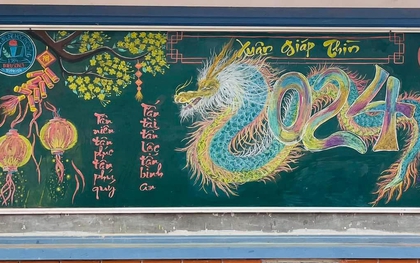 Xuân Giáp Thìn
2024
Tân
niên
tân
phúc
tân
phú
quý
Tấn
tài
tấn
lộc
tấn
bình
an